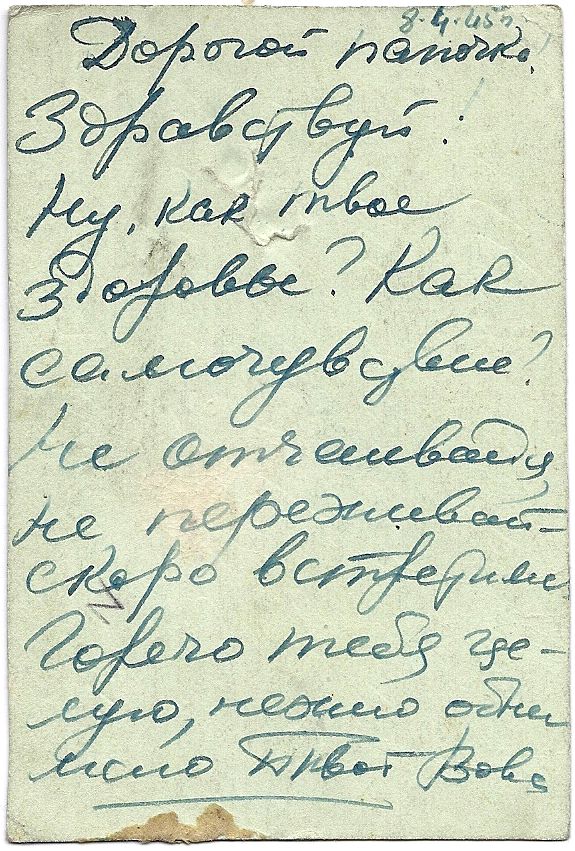 8.4.45г.
Дорогой папочка!
Здравствуй!
Ну, как твое
здоровье? Как
самочувствие?
Не отчаивайся,
не переживай –
скоро встретимся
Горячо тебя це-
лую, нежно обни
маю Твой Вова